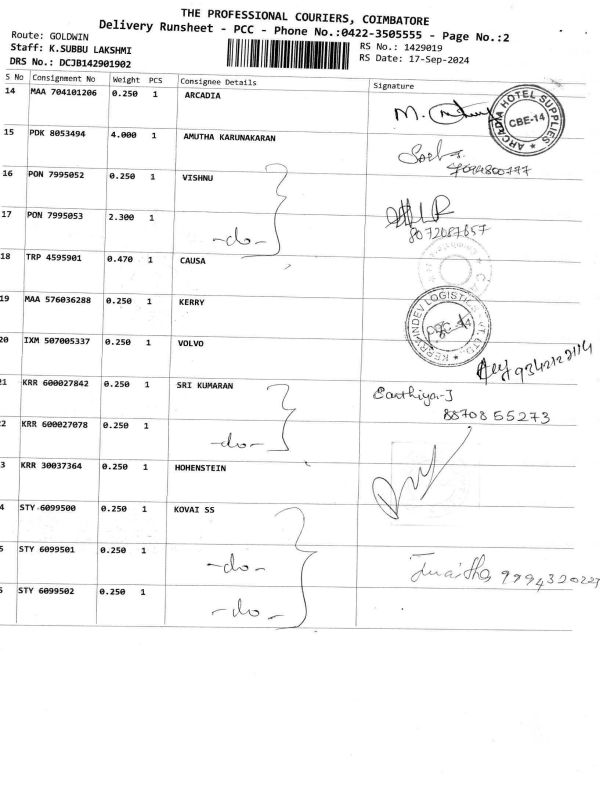 THE PROFESSIONAL COURIERS, COIMBATORE
Delivery Runsheet - PCC - Phone No.:0422-3505555 - Page No.:2
Route: GOLDWIN
Staff: K.SUBBU LAKSHMI
RS No.: 1429019
DRS No.: DCJB142901902
RS Date: 17-Sep-2024
S No Consignment No Weight PCS Consignee Details Signature
14 MAA 704101206 0.250 1 ARCADIA M.
ARCADIA HOTEL SUPPLIES CBE-14
15 PDK 8053494 4.000 1 AMUTHA KARUNAKARAN
16 PON 7995052 0.250 1 VISHNU
17 PON 7995053 2.300 1 -do-
8072087657
18 TRP 4595901 0.470 1 CAUSA
19 MAA 576036288 0.250 1 KERRY
20 IXM 507005337 0.250 1 VOLVO
21 KRR 600027842 0.250 1 SRI KUMARAN
8870855273
22 KRR 600027078 0.250 1 -do-
3 KRR 30037364 0.250 1 HOHENSTEIN
4 STY 6099500 0.250 1 KOVAI SS
5 STY 6099501 0.250 1 -do-
9994320227
6 STY 6099502 0.250 1 -do-